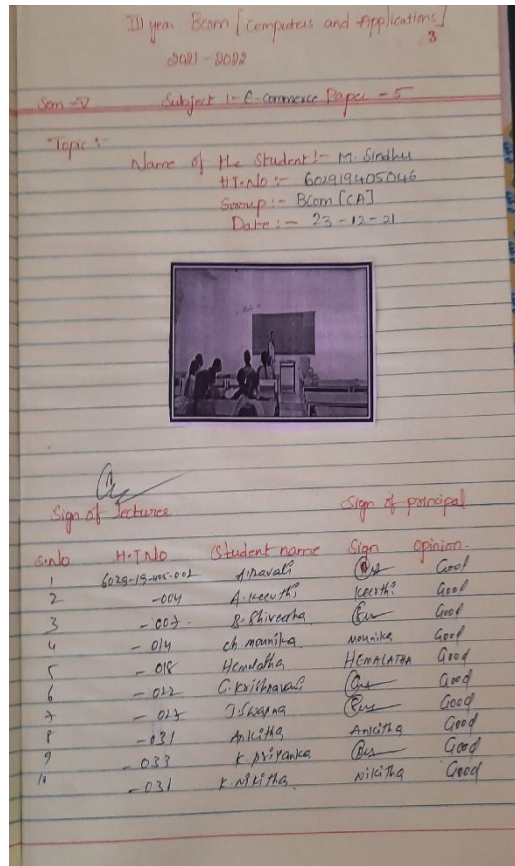 III year Bcom [Computers and Applications]
3
2021-2022
Sem-V Subject :- E-commerce Paper-5
Topic :-
Name of the Student :- M. Sindhu
HT.No :- 602919405046
Group :- Bcom [CA]
Date :- 23-12-21
Sign of lectures Sign of principal
S.No H.T.No Student name Sign opinion.
1 6029-19-405-002 A.Navali Good
2 -004 A.keerthi keerthi Good
3 -007 Good
4 -014 ch.mounika Mounika Good
5 -018 Hemalatha HEMALATHA Good
6 -022 Good
7 -027 Swapna Good
8 -031 Ankitha Ankitha Good
9 -033 K priyanka Good
10 -031 K.Nikitha Nikitha Good